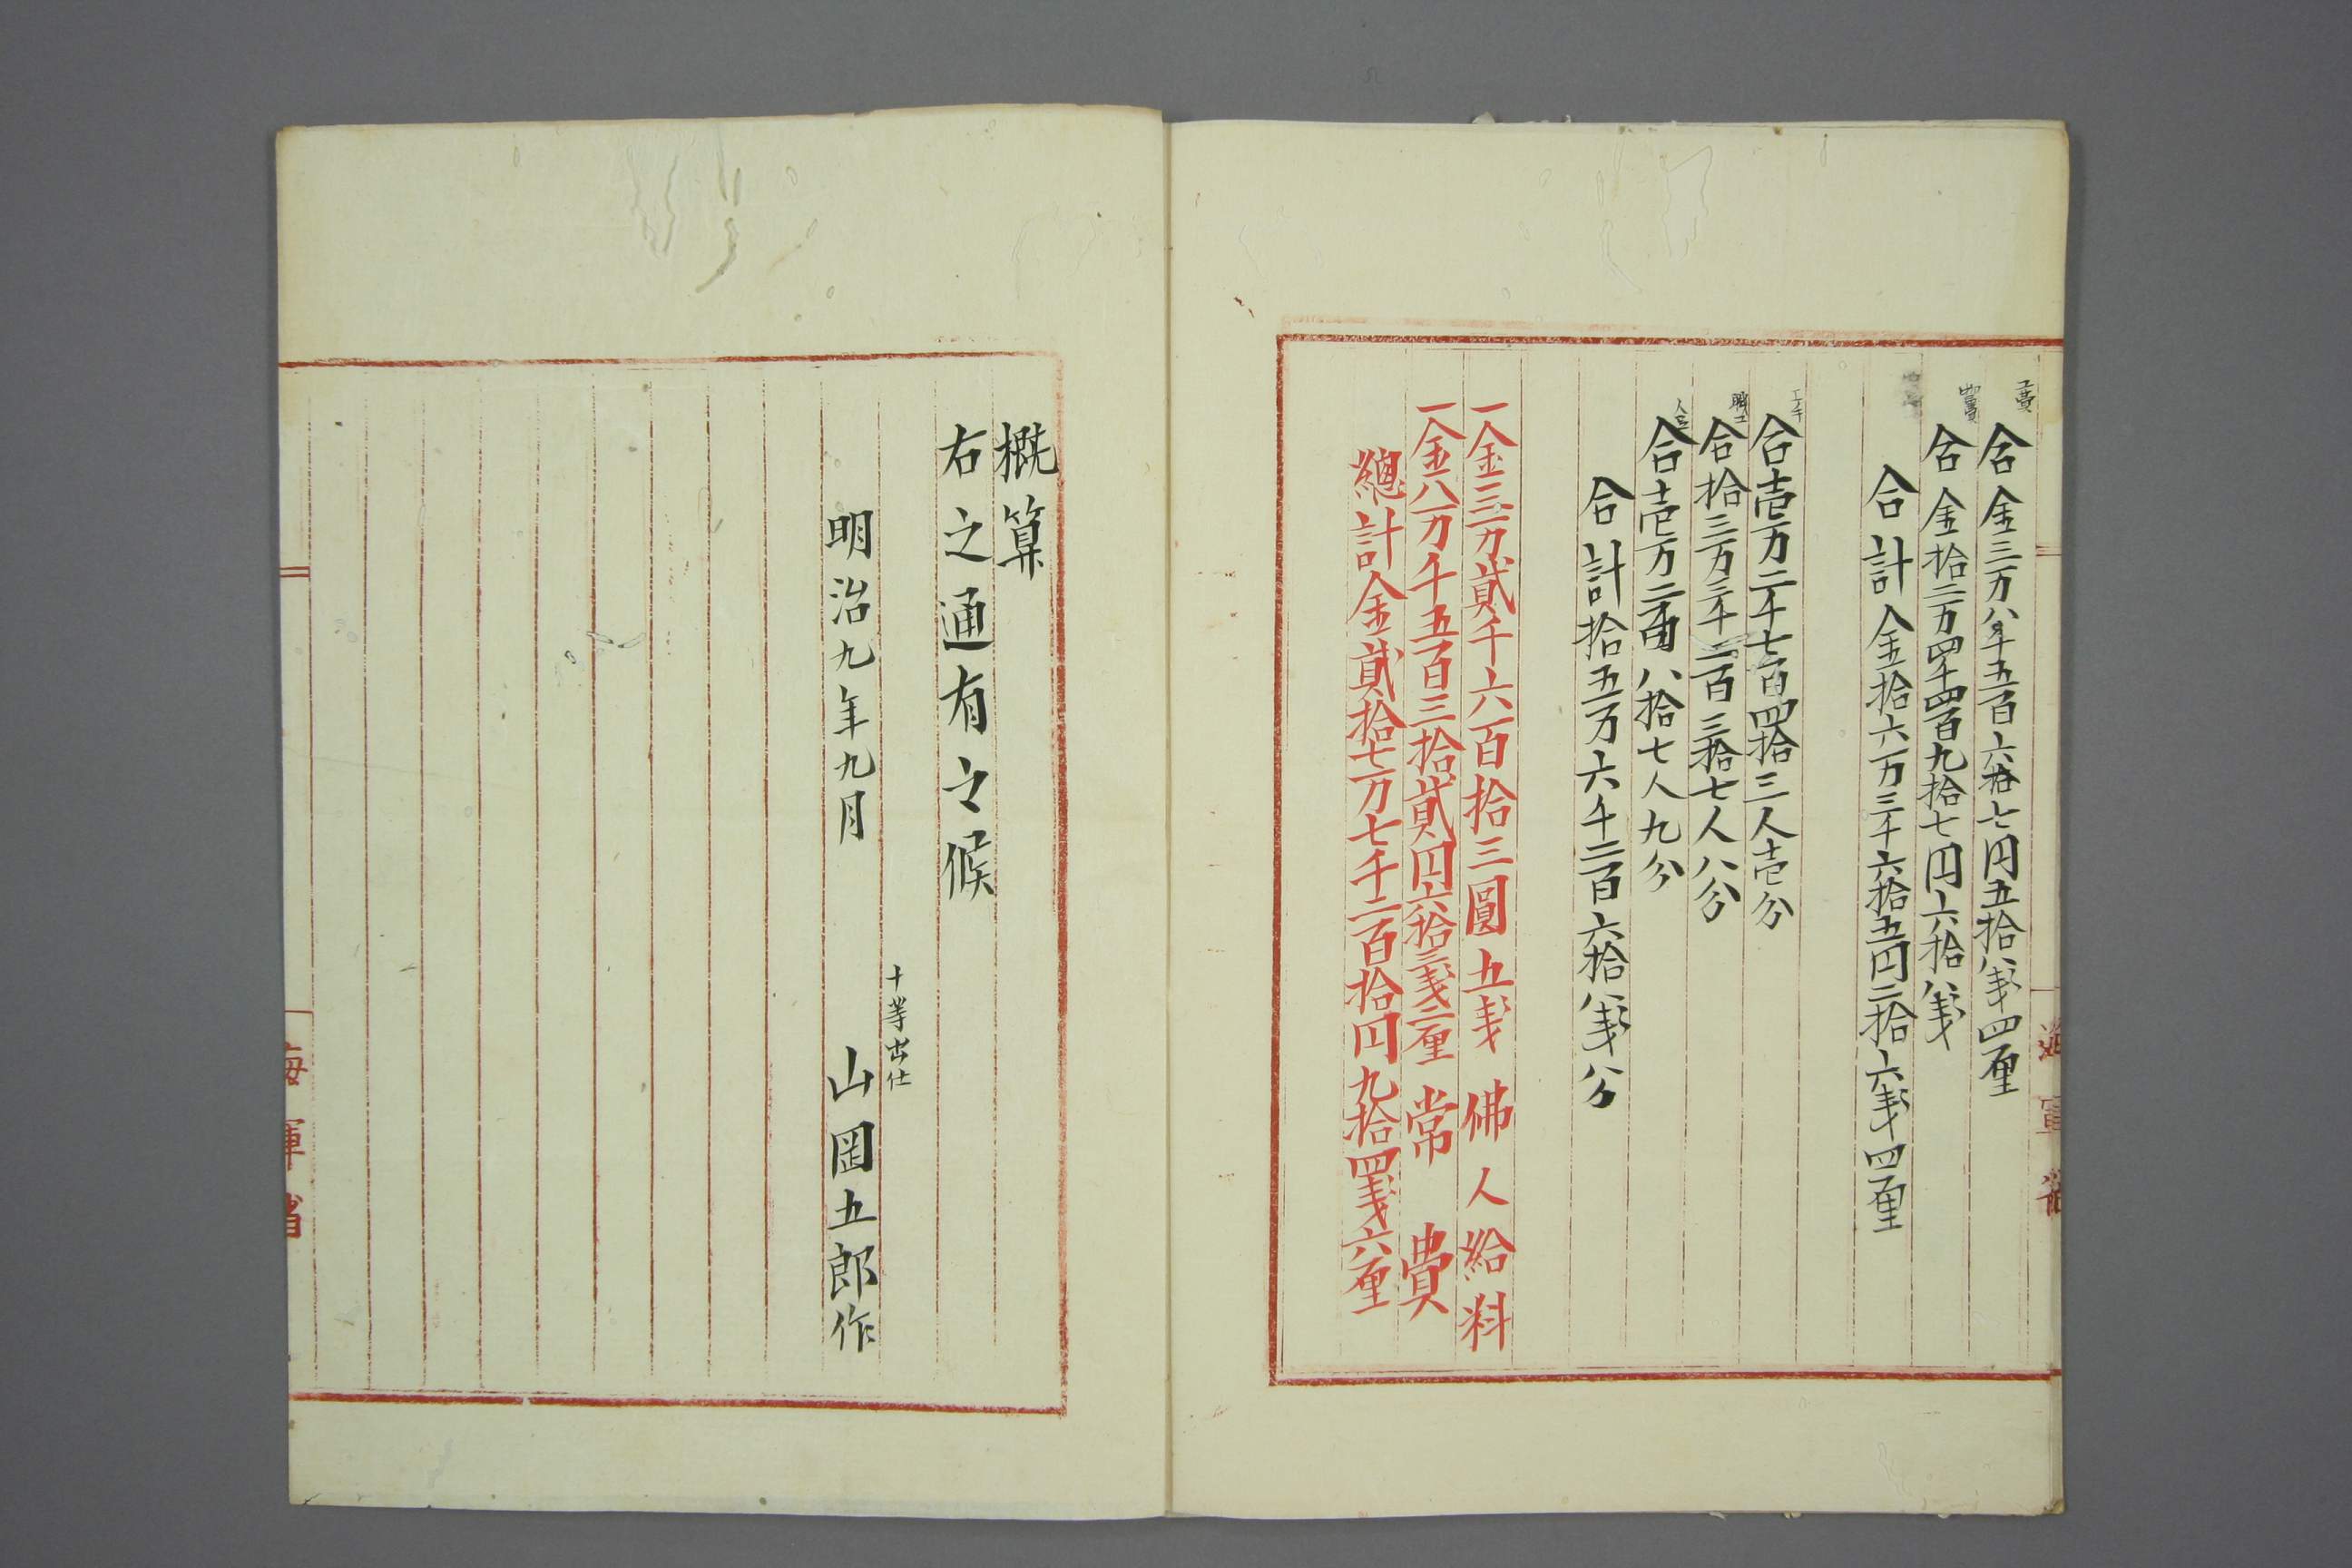 工費
合金三万八千五百六拾七円五拾八銭四厘
合金拾二万四千四百九拾七円六拾八銭
合計金拾六万三千六拾五円二拾六銭四厘
合壱万二千七百四拾三人壱分
職工
合拾三万三千二百三拾七人八分
人足
合壱万二百八拾七人九分
合計拾五万六千二百六拾八銭八分
一金三万貳千六百拾三圓五銭 佛人給料
一金八万千五百三拾貳円六拾三銭二厘 常費
總計金貳拾七万七千二百拾円九拾四銭六厘
海軍省
概算
右之通有之候
十等出仕
明治九年九月 山岡五郎作
海軍省